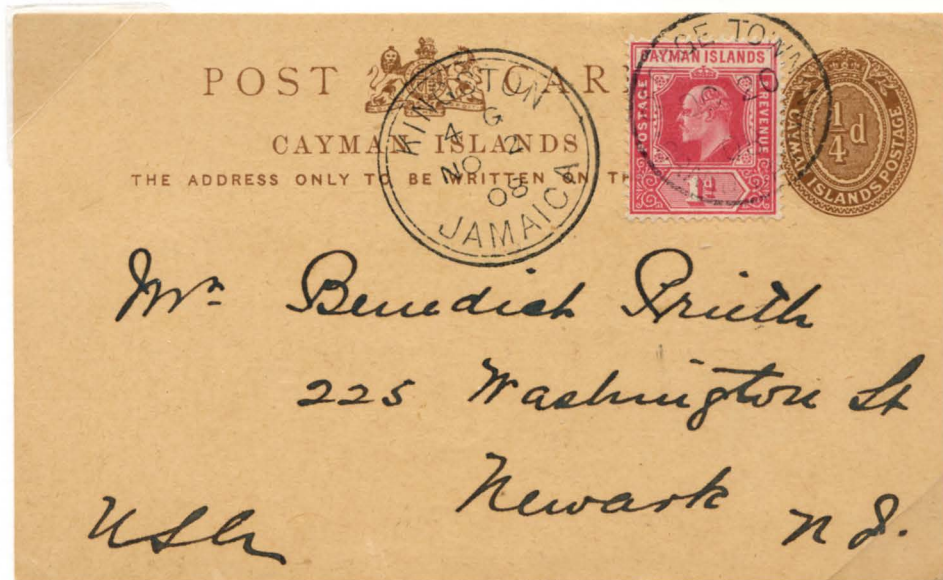 POST CAR
CAYMAN ISLANDS
THE ADDRESS ONLY TO BE WRITTEN ON TH
KINGSTON
4 G
NO 2
08
JAMAICA
GE TOWN
CAYMAN ISLANDS
POSTAGE
& REVENUE
1d
1/4d
ISLANDS POSTAGE
Mr. Benedict Prieth
225 Washington St
Newark N J.
USA